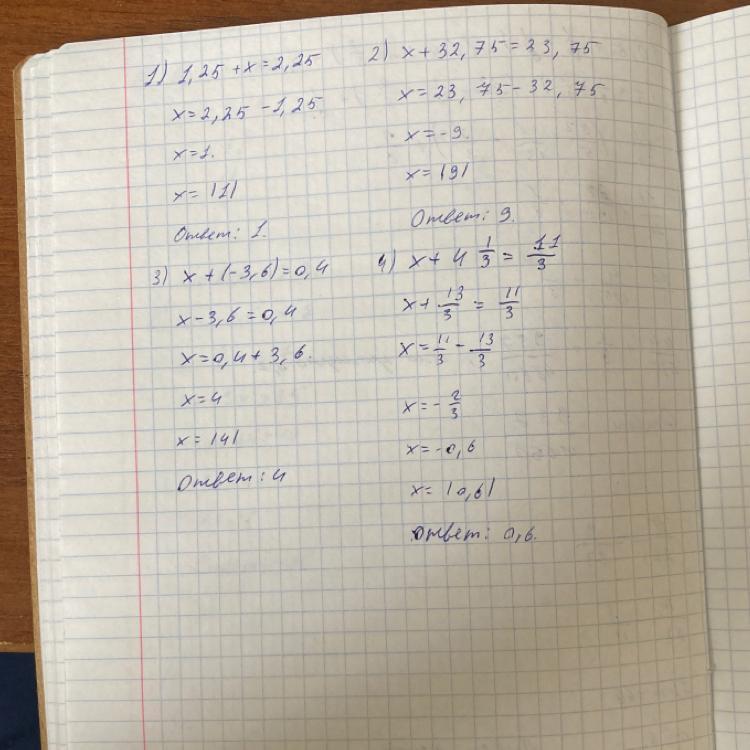 1) 1,25 + x = 2,25
x = 2,25 - 1,25
x = 1.
x = |1|
Ответ: 1.
2) x + 32,75 = 23,75
x = 23,75 - 32,75
x = -9.
x = |9|
Ответ: 9.
3) x + (-3,6) = 0,4
x - 3,6 = 0,4
x = 0,4 + 3,6.
x = 4
x = |4|
Ответ: 4
4) x + 4 1/3 = 11/3
x + 13/3 = 11/3
x = 11/3 - 13/3
x = - 2/3
x = -0,6
x = |0,6|
Ответ: 0,6.